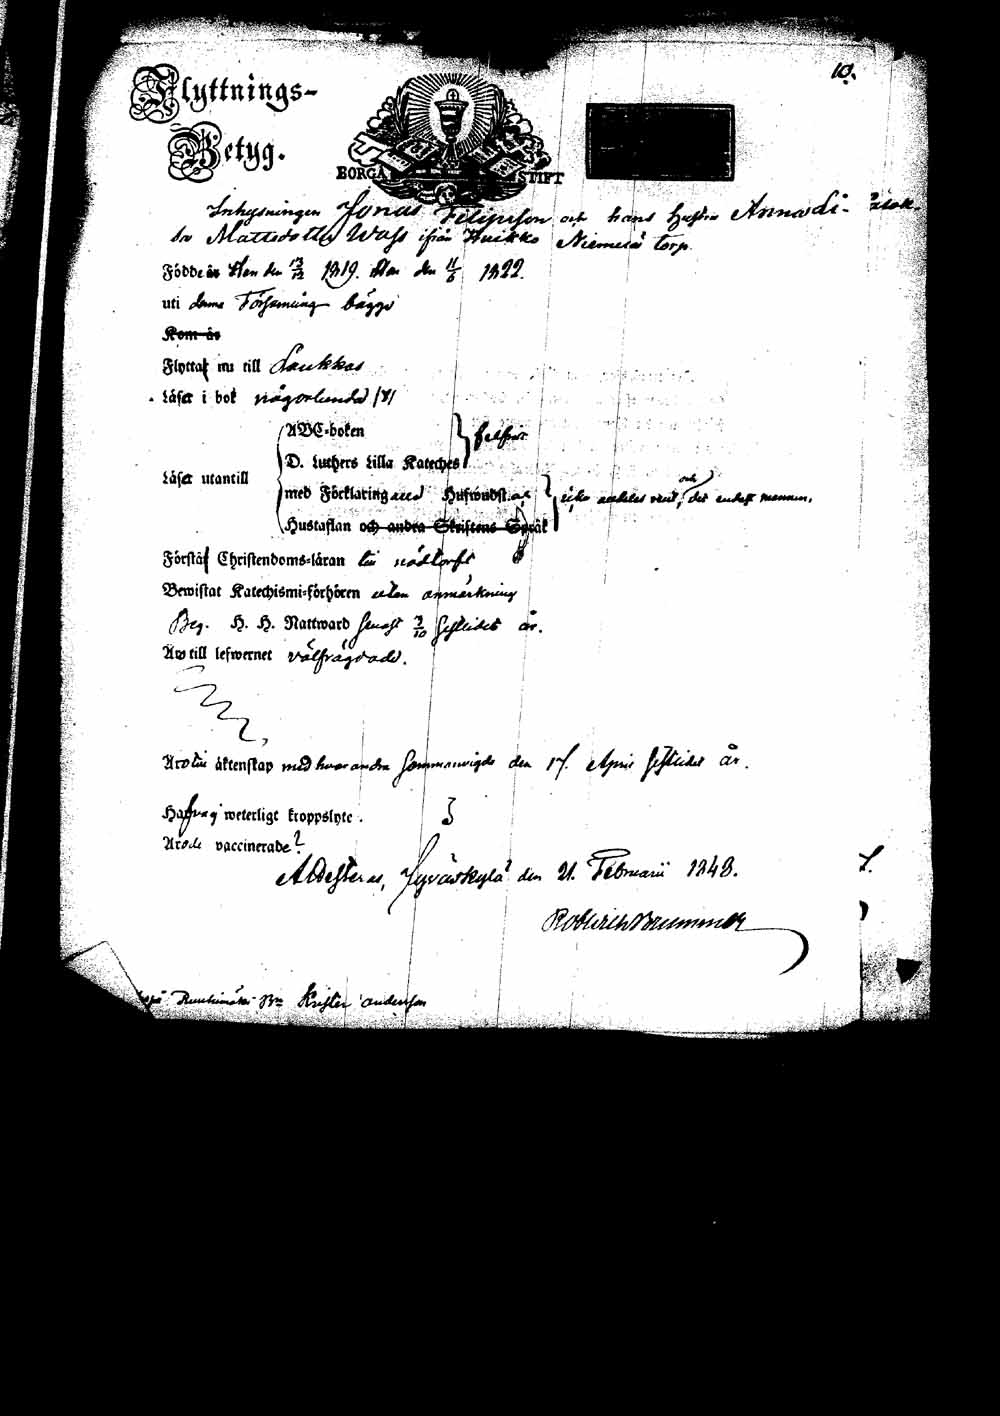 10.
Flyttnings-
Betyg.
BORGÅ STIFT
Inhysningen Jonas Filipsson och hans hustru Anna Li-
sa Mattsdotter Wass ifrån Huikko Niemelä torp.
Födde är Han den 13/12 1819. Hon den 11/6 1822.
uti denna Församling bägge
Kom år
Flytta nu till Laukkas
Läser i bok någorlunda /8/
ABC-boken
D. Luthers Lilla Kateches
felfritt
Läser utantill
med Förklaring med Huswudst. och
Hustaflan och andra Skriftens Språk
icke aldeles rent, och det endast mannen.
Förstå Christendoms-läran till nödtorft
Bewistat Katechismi-förhören utan anmärkning
Beg. H. H. Nattward senast 3/10 sistledet år.
Äro till lefwernet välfrägdade.
Äro till äktenskap med hvarandra sammanvigde den 17. April sistledet år.
Hafva ej weterligt kroppslyte.
Äro de vaccinerade?
Attesteras, Jyväskylä den 21. Februarii 1848.
Anderson